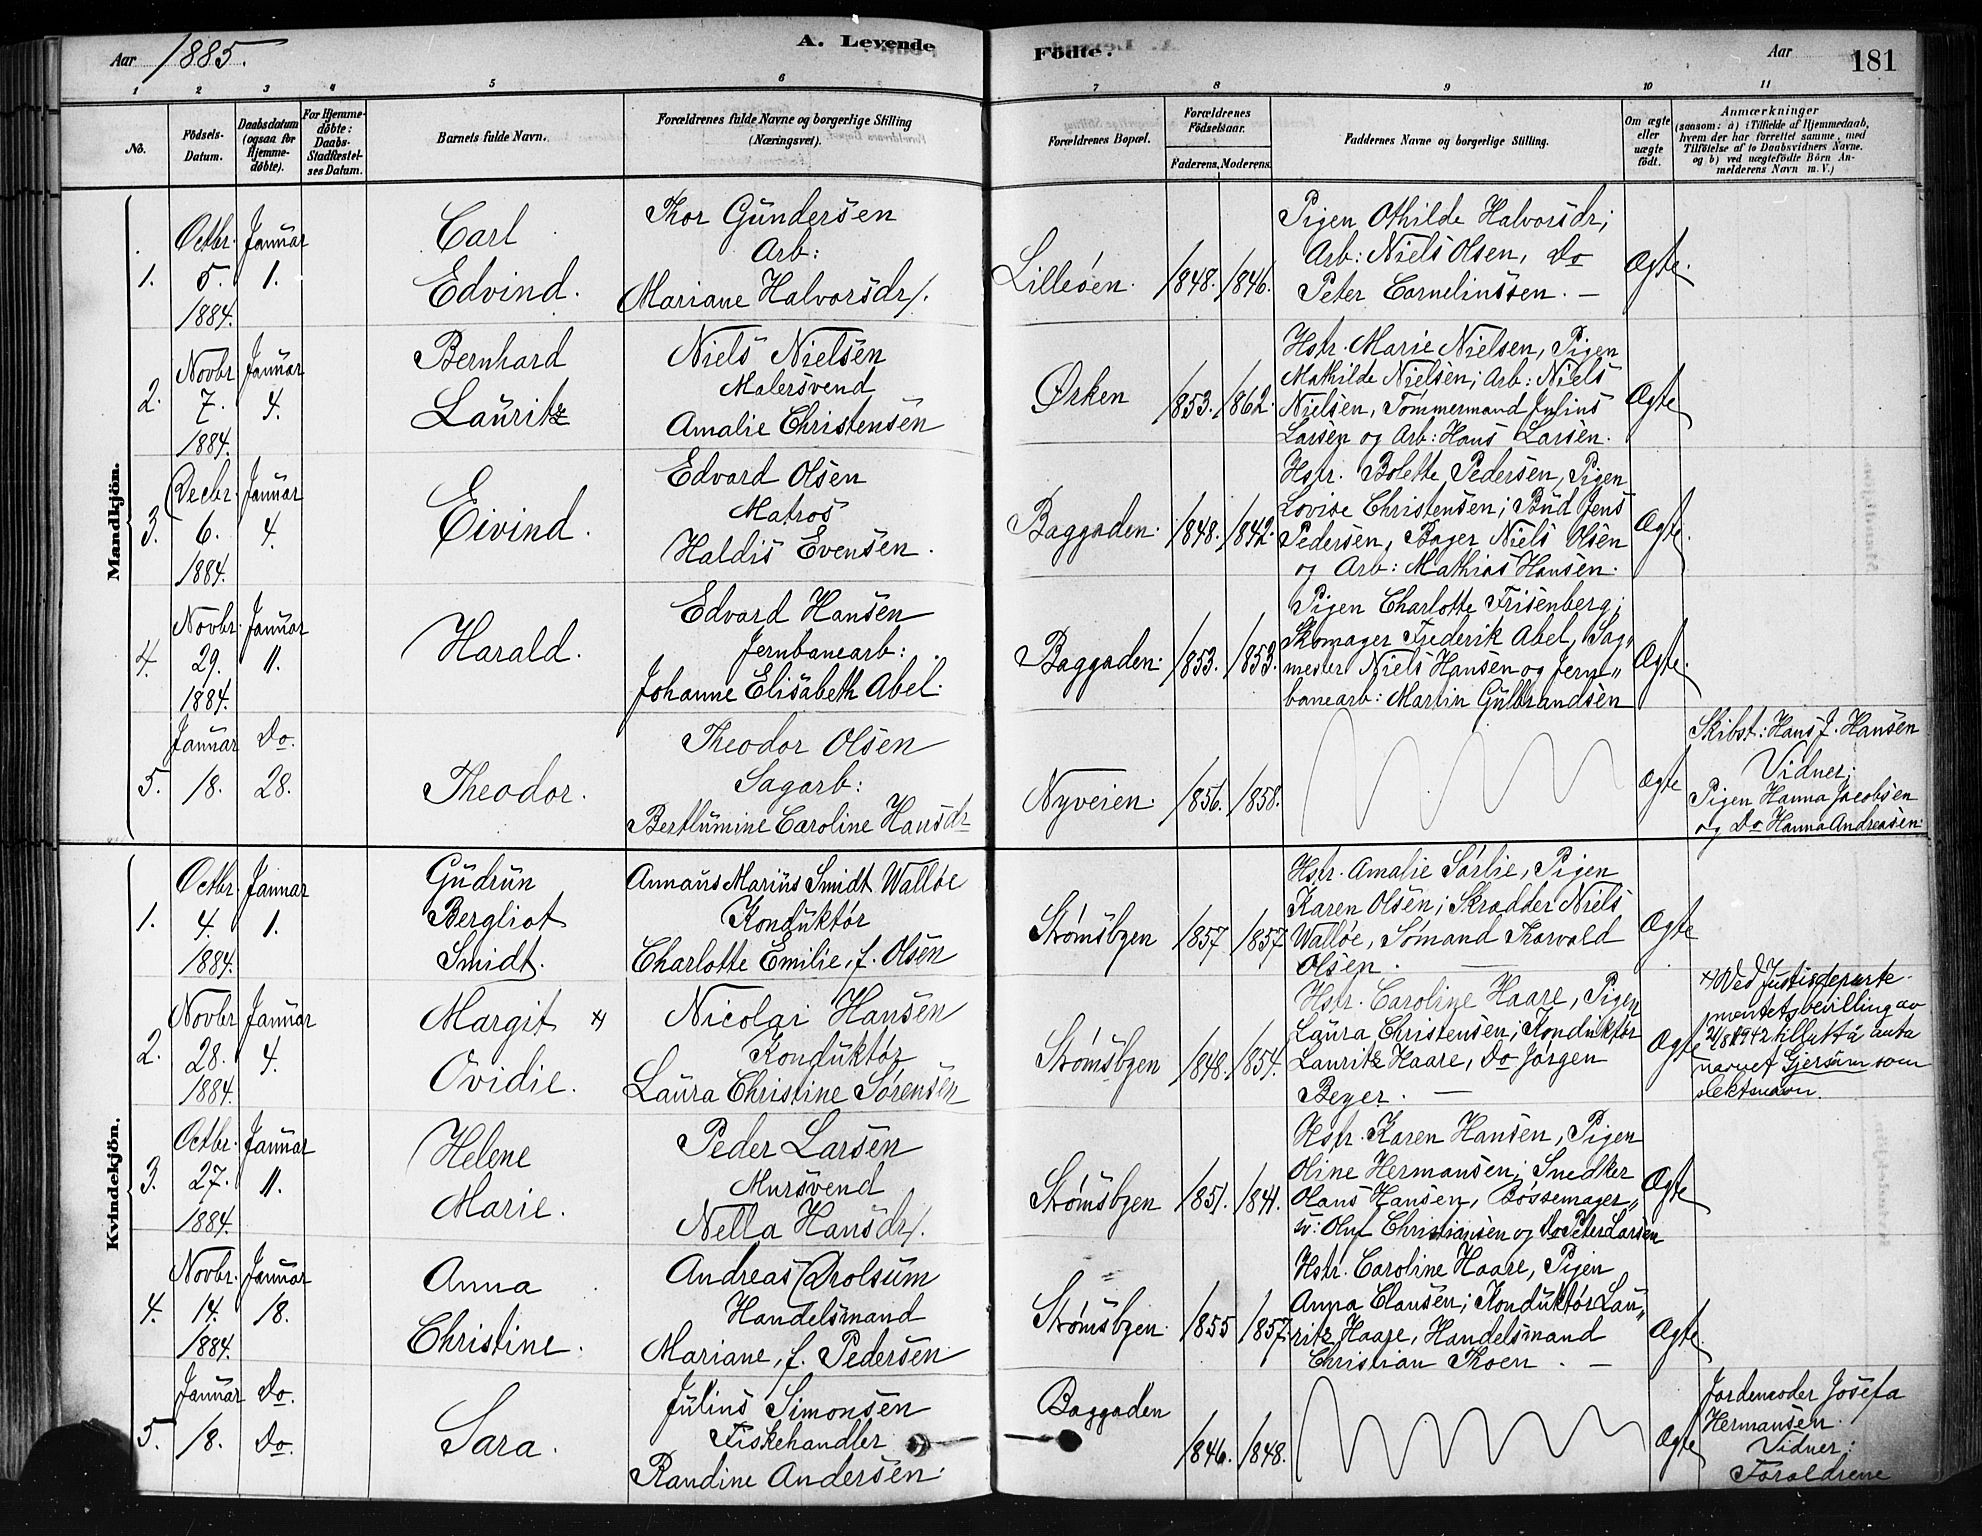 Aar 1885. A. Levende Födte. Aar 181
1 2 3 4 5 6 7 8 9 10 11
No.
Födsels-Datum.
Daabsdatum (ogsaa for Hjemme-döbte).
For Hjemme-döbte: Daabs-Stadfæstel-ses Datum.
Barnets fulde Navn.
Forældrenes fulde Navne og borgerlige Stilling
(Næringsvei).
Forældrenes Bopæl.
Forældrenes Födselsaar.
Faderens. Moderens.
Faddernes Navne og borgerlige Stilling.
Om ægte eller uægte födt.
Anmærkninger
(saasom: a) i Tilfælde af Hjemmedaab,
hvem der har forrettet samme, med
Tilföielse af to Daabsvidners Navne.
og b) ved uægtefödte Börn An-
melderens Navn m. V.)
Mandkjön.
1.
Octbr. 5. 1884.
Januar 1.
Carl
Edvind.
Thor Gundersen
Arb:
Mariane Halvorsdr/.
Lilleöen.
1848. 1846.
Pigen Othilde Halvorsdr;
Arb: Niels Olsen, Do
Peter Cornelinssen. —
Ægte.
2.
Novbr 7. 1884.
Januar 4.
Bernhard
Lauritz
Niels Nielsen
Malersvend
Amalie Christensen
Ørken
1853. 1862.
Hstr. Marie Nielsen, Pigen
Mathilde Nielsen; Arb: Niels
Nielsen, Tömmermand Julius
Larsen og Arb: Hans Larsen.
Ægte
3.
Decbr. 6. 1884.
Januar 4.
Eivind.
Edvard Olsen
Matros
Haldis Evensen.
Baggaden.
1848. 1842.
Hstr. Bolette Pedersen, Pigen
Lovise Christensen; Bud Jens
Pedersen, Bager Niels Olsen
og Arb: Mathias Hansen.
Ægte.
4.
Novbr. 29. 1884.
Januar 11.
Harald.
Edvard Hansen
Jernbanearb:
Johanne Elisabeth Abel.
Baggaden.
1853. 1853.
Pigen Charlotte Frisenberg;
Skomager Frederik Abel, Sag„
mester Niels Hansen og Jern„
banearb: Martin Gulbrandsen
Ægte.
5.
Januar 18.
Do. 28.
Theodor.
Theodor Olsen
Sagarb:
Bertlumine Caroline Hansdr
Nyveien.
1856. 1858.
Ægte
Skibst: Hans J. Hansen
Vidner;
Pigen Hanna Jacobsen
og Do Hanna Andreasen.
Kvindekjön.
1.
Octbr. 4. 1884.
Januar 1.
Gudrun
Bergliot
Smidt.
Annaus Marius Smidt Walløe
Konduktør
Charlotte Emilie, f. Olsen
Strømsbyen
1857 1857
Hstr. Amalie Sørlie, Pigen
Karen Olsen; Skradder Niels
Walløe, Sømand Thorvald
Olsen. —
Ægte
2.
Novbr 28. 1884.
Januar 4.
Margit x)
Ovidie.
Nicolai Hansen
Konduktør
Laura Christine Sørensen
Strømsbyen
1848. 1854.
Hstr. Caroline Haare, Pigen
Laura Christensen; Konduktør
Lauritz Haare, Do Jørgen
Beyer. —
Ægte
x) Ved Justisdeparte-
mentets bevilling av
21/8 1942 tillatt å anta
navnet Gjersum som
slektsnavn.
3.
Octbr. 27. 1884.
Januar 11.
Helene
Marie.
Peder Larsen
Mursvend
Nella Hansdr/.
Strømsbyen
1851. 1841.
Hstr. Karen Hansen, Pigen
Oline Hermansen; Snedker
Hans Hansen, Bøssemager„
sv: Oluf Christiansen og Do Peter Larsen
Ægte
4.
Novbr. 14. 1884.
Januar 18.
Anna
Christine.
Andreas Drolsum
Handelsmand
Mariane, f. Pedersen
Strømsbyen.
1855 1857.
Hstr. Caroline Haare, Pigen
Anna Clausen; Konduktør Lau„
ritz Haare, Handelsmand
Christian Thoen. —
Ægte.
5.
Januar 18.
Do. Do.
Sara.
Julius Simonsen
Fiskehandler
Randine Andersen.
Baggaden
1846. 1848.
Ægte
Jordemoder Josefa
Hermansen.
Vidner:
Forældrene